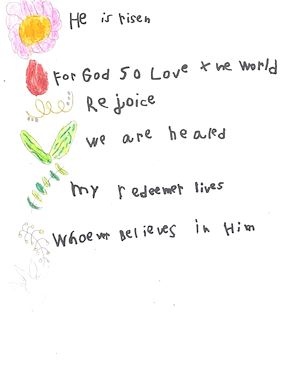 He is risen
For God so Love the world
Rejoice
we are healed
my redeemer lives
Whoever Believes in Him